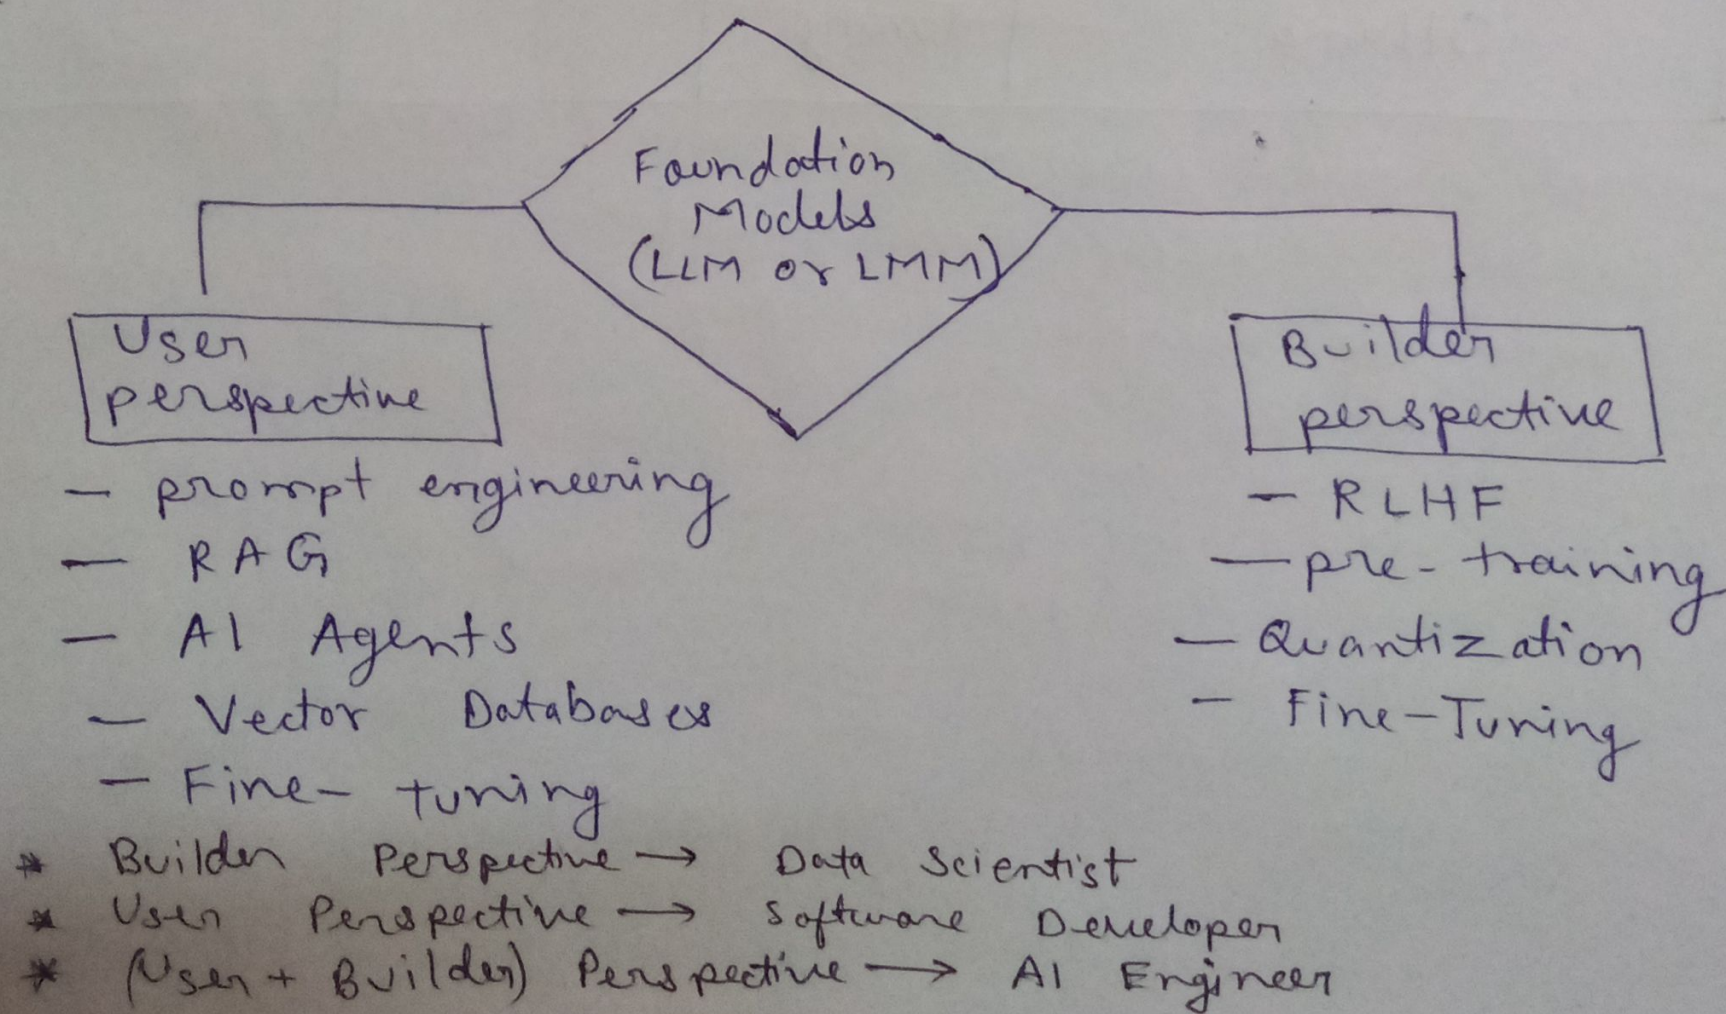 Foundation
Models
(LLM or LMM)
User
perspective
- prompt engineering
- RAG
- AI Agents
- Vector Databases
- Fine-tuning
Builder
perspective
- RLHF
- pre-training
- Quantization
- Fine-Tuning
* Builder Perspective → Data Scientist
* User Perspective → Software Developer
* (User + Builder) Perspective → AI Engineer